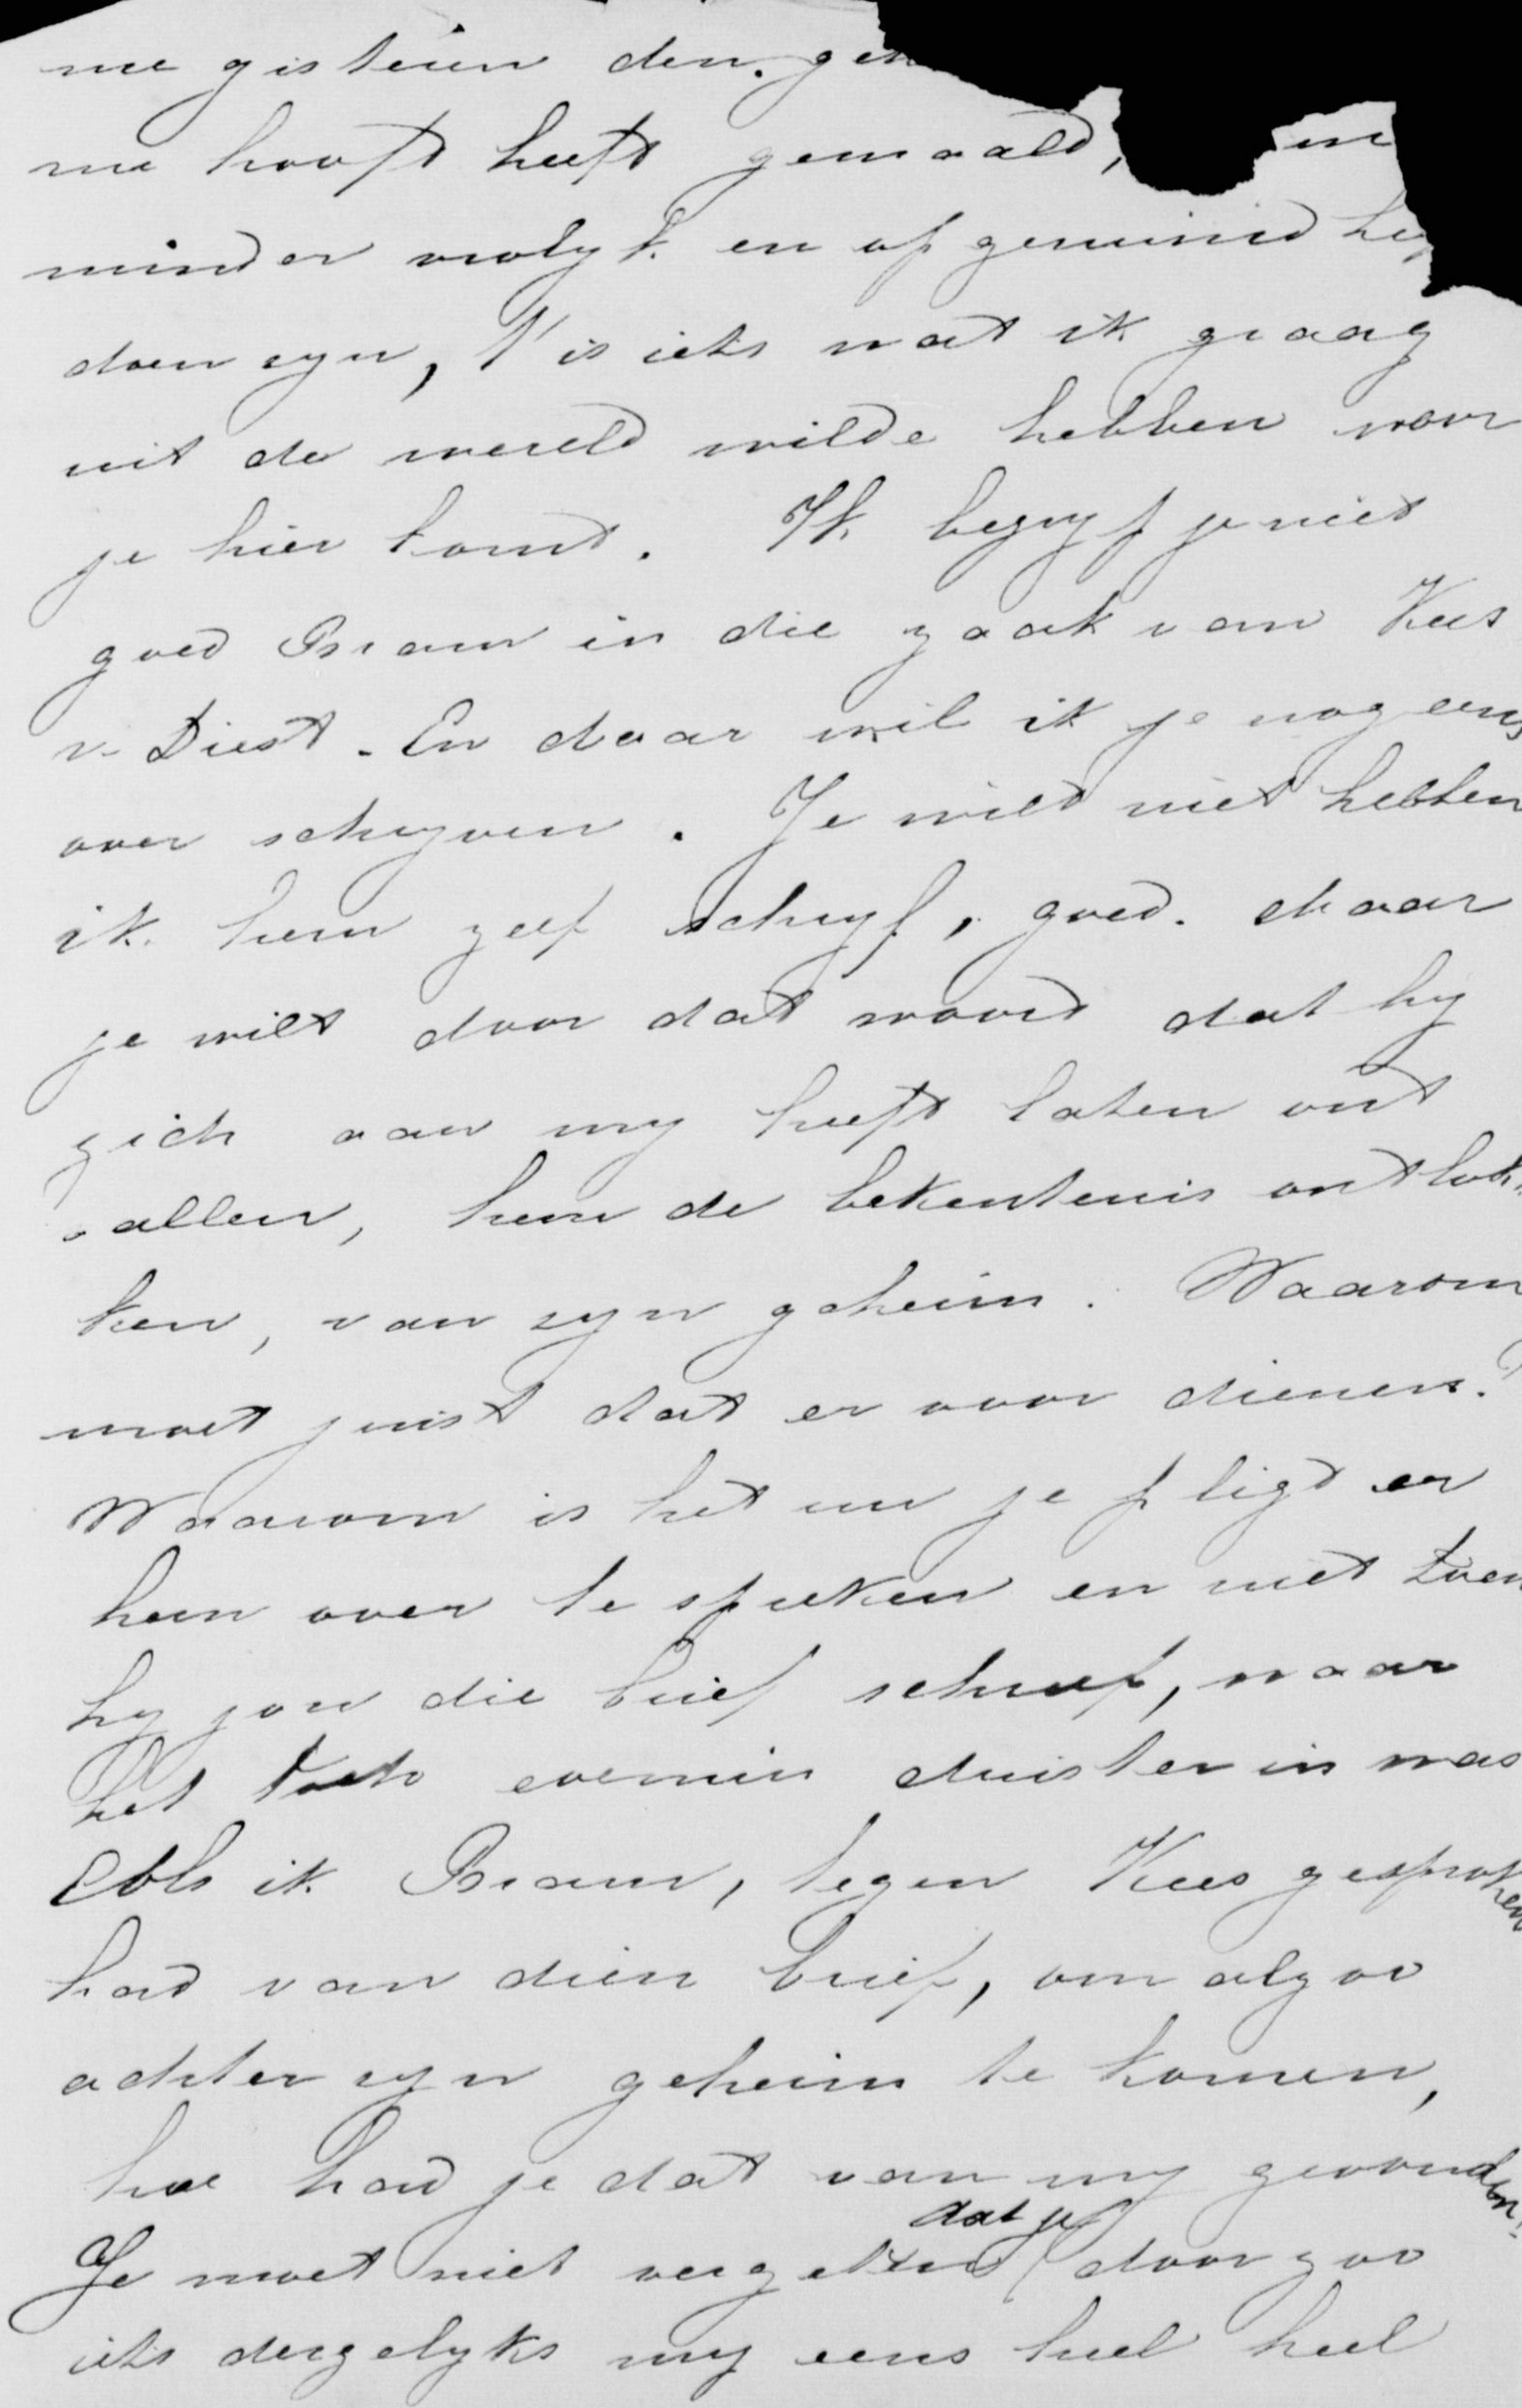 me gisteren den ge
me hooft heeft gemaald, me
minder vrolyk en opgeruimd he
doen zyn, 't is iets wat ik graag
uit de wereld wilde hebben voor
je hier komt. Ik begryf je niet
goed Bram in die zaak van Kees
v. Diest. En daar wil ik je nog eens
over schryven. Je wilt niet hebben
ik hem zelf schryf, goed. Maar
je wilt door dat woord dat hy
zich aan my heeft laten ont
vallen, hem de bekentenis ontlok
ken, van zyn geheim. Waarom
moet juist dat er voor dienen?
Waarom is het nu je pligt er
hem over te spreken en niet toen
hy jou die brief schreef, waar
het toch evenmin duister in was
Als ik Bram, tegen Kees gesproken
had van dien brief, om alzoo
achter zyn geheim te komen,
hoe had je dat van my gevonden?
dat je
Je moet niet vergeten door zoo
iets dergelyks my eens heel heel